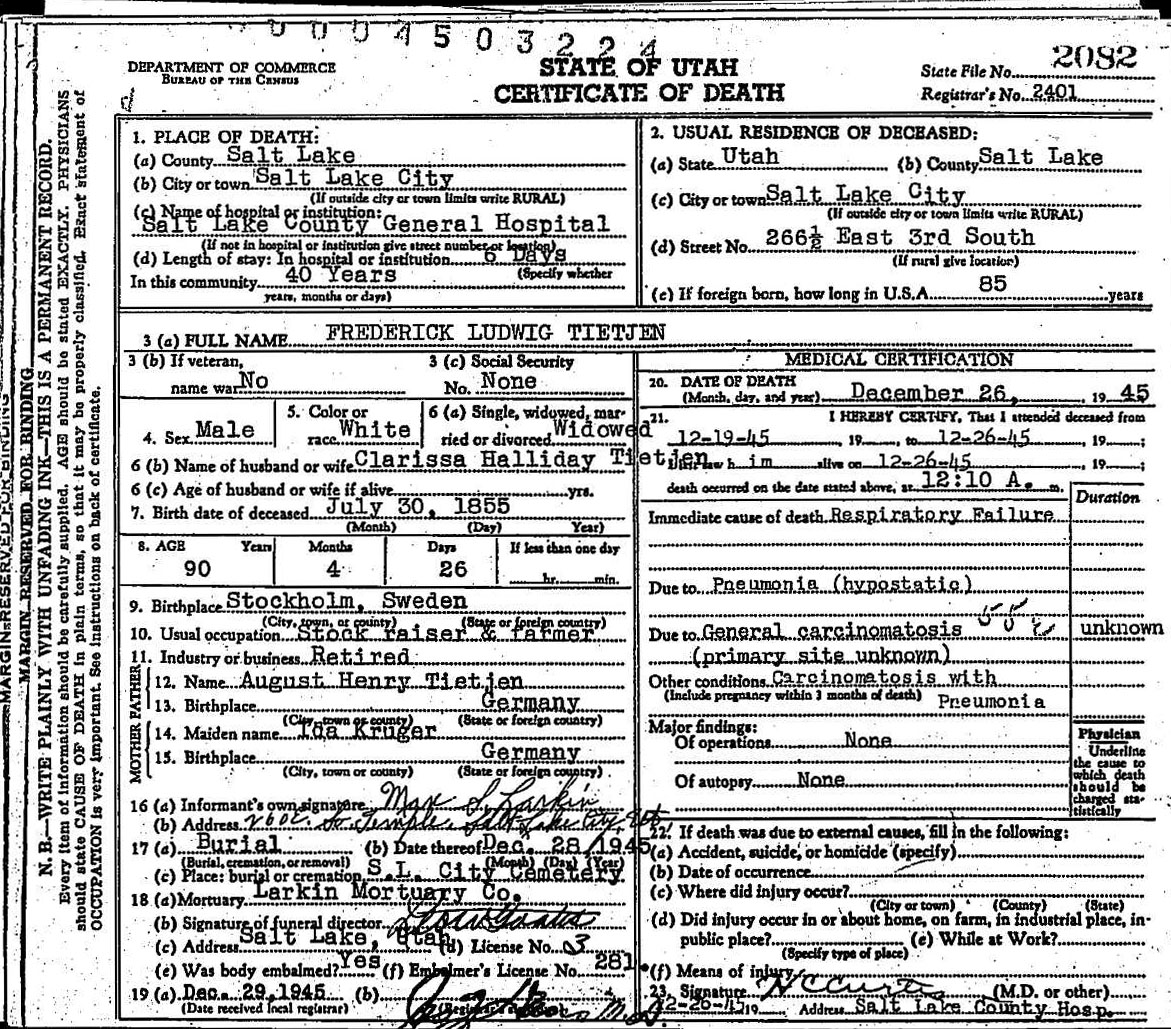 0004503224
DEPARTMENT OF COMMERCE
BUREAU OF THE CENSUS
STATE OF UTAH
CERTIFICATE OF DEATH
State File No. 2082
Registrar's No. 2401
MARGIN RESERVED FOR BINDING
MARGIN RESERVED FOR BINDING
N. B.—WRITE PLAINLY WITH UNFADING INK—THIS IS A PERMANENT RECORD.
Every item of information should be carefully supplied. AGE should be stated EXACTLY. PHYSICIANS
should state CAUSE OF DEATH in plain terms, so that it may be properly classified. Exact statement of
OCCUPATION is very important. See instructions on back of certificate.
1. PLACE OF DEATH:
(a) County Salt Lake
(b) City or town Salt Lake City
(If outside city or town limits write RURAL)
(c) Name of hospital or institution:
Salt Lake County General Hospital
(If not in hospital or institution give street number or location)
(d) Length of stay: In hospital or institution 6 Days
In this community 40 Years (Specify whether
years, months or days)
2. USUAL RESIDENCE OF DECEASED:
(a) State Utah (b) County Salt Lake
(c) City or town Salt Lake City
(If outside city or town limits write RURAL)
(d) Street No. 266½ East 3rd South
(If rural give location)
(e) If foreign born, how long in U.S.A. 85 years
3 (a) FULL NAME FREDERICK LUDWIG TIETJEN
3 (b) If veteran, name war No
3 (c) Social Security No. None
4. Sex Male
5. Color or race White
6 (a) Single, widowed, married or divorced Widowed
6 (b) Name of husband or wife Clarissa Halliday Tietjen
6 (c) Age of husband or wife if alive yrs.
7. Birth date of deceased July 30, 1855
(Month) (Day) Year)
8. AGE Years Months Days If less than one day
90 4 26 hr. min.
9. Birthplace Stockholm, Sweden
(City, town, or county) (State or foreign country)
10. Usual occupation Stock raiser & farmer
11. Industry or business Retired
FATHER
12. Name August Henry Tietjen
13. Birthplace Germany
(City, town or county) (State or foreign country)
MOTHER
14. Maiden name Ida Kruger
15. Birthplace Germany
(City, town or county) (State or foreign country)
16 (a) Informant's own signature Max S. Larkin
(b) Address 260 E. So. Temple, Salt Lake City, Ut
17 (a) Burial (b) Date thereof Dec. 28/1945
(Burial, cremation, or removal) (Month) (Day) (Year)
(c) Place: burial or cremation S.L. City Cemetery
18 (a) Mortuary Larkin Mortuary Co.
(b) Signature of funeral director
(c) Address Salt Lake, Utah (d) License No. 03
(e) Was body embalmed? Yes (f) Embalmer's License No. 281
19 (a) Dec. 29, 1945 (b)
(Date received local registrar)
MEDICAL CERTIFICATION
20. DATE OF DEATH
(Month, day, and year) December 26, 19 45
21. I HEREBY CERTIFY, That I attended deceased from
12-19-45 , 19 , to 12-26-45 , 19 ;
saw him alive on 12-26-45 , 19 ;
death occurred on the date stated above, at 12:10 A. m.
Duration
Immediate cause of death Respiratory Failure
Due to Pneumonia (hypostatic)
Due to General carcinomatosis unknown
(primary site unknown)
Other conditions Carcinomatosis with
(Include pregnancy within 3 months of death) Pneumonia
Major findings:
Of operations None
Of autopsy None
Physician
Underline
the cause to
which death
should be
charged sta-
tistically
22. If death was due to external causes, fill in the following:
(a) Accident, suicide, or homicide (specify)
(b) Date of occurrence
(c) Where did injury occur?
(City or town) (County) (State)
(d) Did injury occur in or about home, on farm, in industrial place, in-
public place? (e) While at Work?
(Specify type of place)
(f) Means of injury
23. Signature (M.D. or other)
12-26-45 19 Address Salt Lake County Hosp.